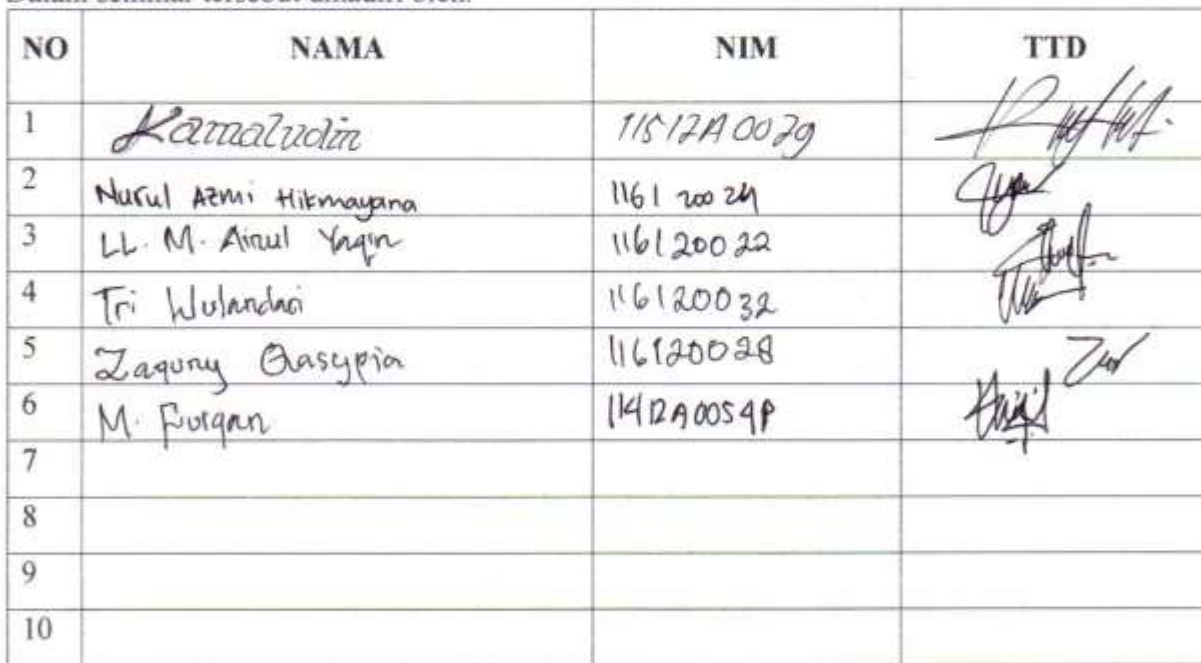 Dalam seminar tersebut dihadiri oleh:
NO NAMA NIM TTD
1 Kamaludin 11512A0029
2 Nurul Azmi Hikmayana 116120024
3 LL. M. Ainul Yaqin 116120022
4 Tri Wulandari 116120032
5 Zaquny Qasypia 116120028
6 M. Furqan 11412A0054P
7
8
9
10